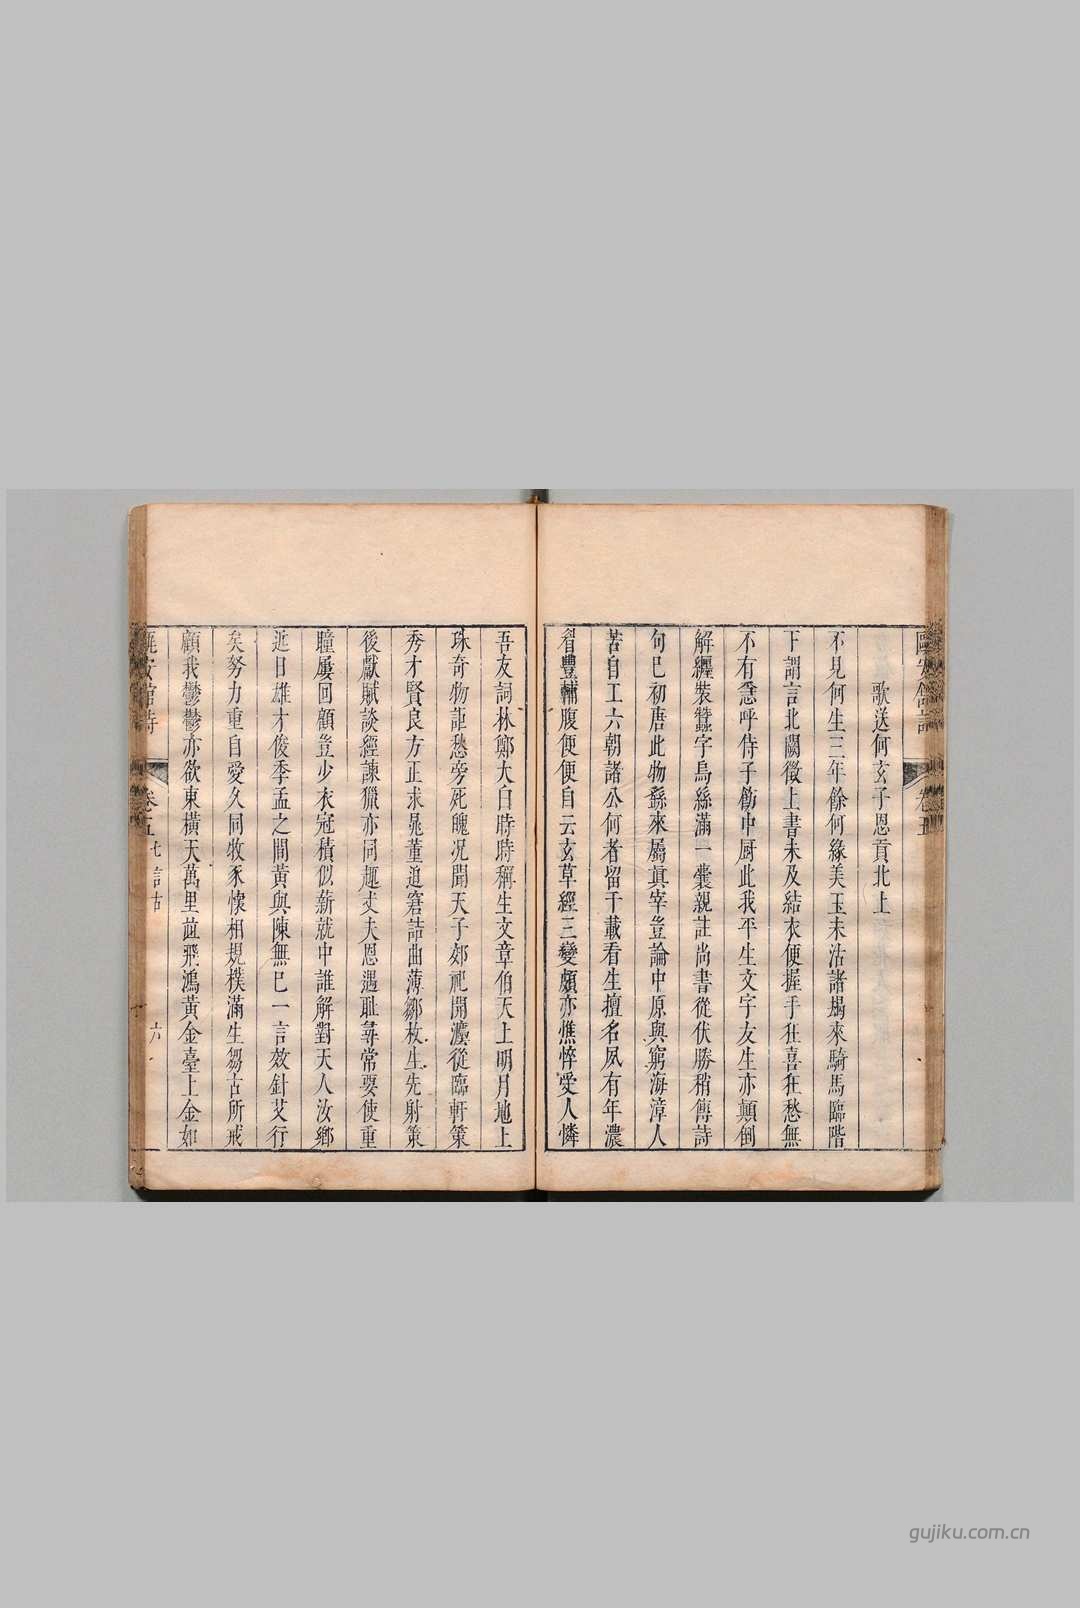 歌送何玄子恩貢北上
不見何生三年餘何緣美玉未沽諸朅來騎馬臨階
下謂言北闕徵上書未及結衣便握手狂喜狂愁無
不有急呼侍子飭中厨此我平生文字友生亦顛倒
解纏裝蠶字烏絲滿一囊親註尚書從伏勝稍傳詩
句已初唐此物繇來屬眞宰豈論中原與窮海漳人
苦自工六朝諸公何者留千載看生擅名夙有年濃
眉豐輔腹便便自云玄草經三變頗亦憔悴受人憐
吾友詞林鄭大白時時稱生文章伯天上明月地上
珠奇物詎愁旁死魄况聞天子郊祀開瀍從臨軒策
秀才賢良方正求晁董追窘詰曲薄鄒枚生先射策
後獻賦談經諫獵亦同趣丈夫恩遇耻尋常要使重
瞳屢回顧豈少衣冠積似薪就中誰解對天人汝鄉
近日雄才俊季孟之間黃與陳無已一言效針艾行
矣努力重自愛久同牧豕懷相規樸滿生芻古所戒
顧我鬱鬱亦欲東橫天萬里並飛鴻黃金臺上金如
卷五
七言古
六
卷五
gujiku.com.cn